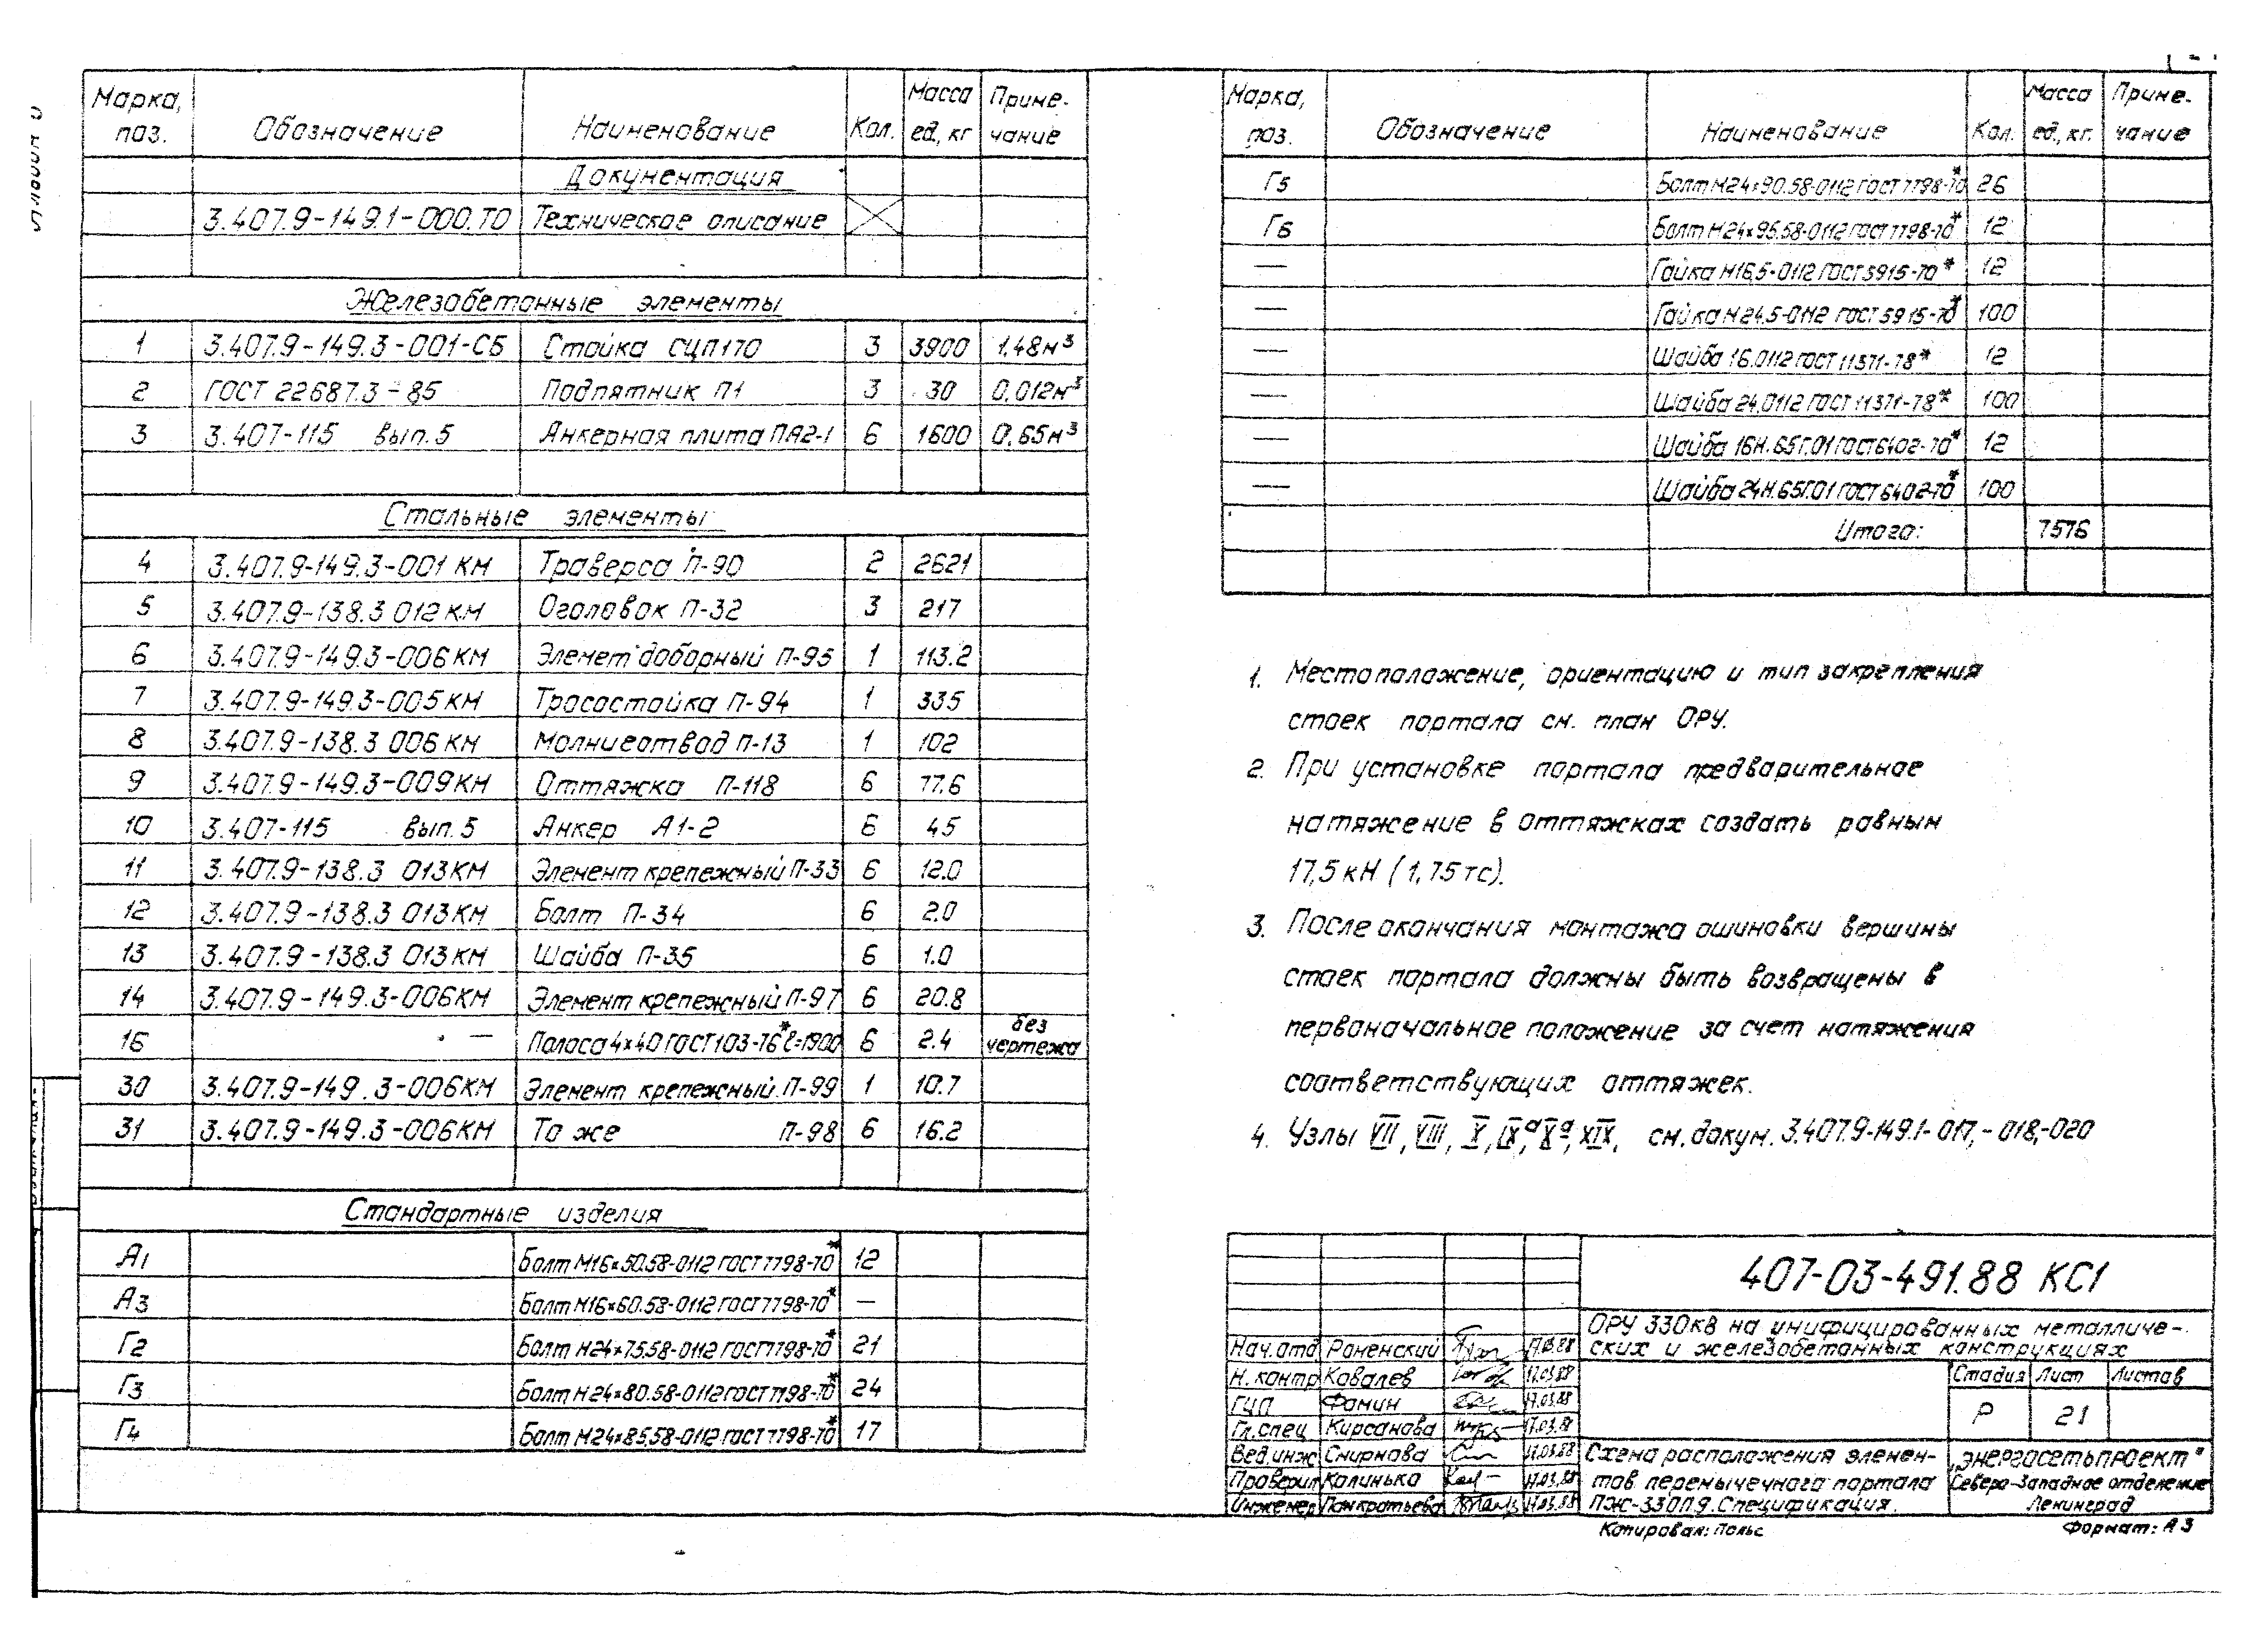 Альбом
Марка, поз. Обозначение Наименование Кол. Масса ед, кг Приме-чание
Документация
3.407.9-149.1-000.ТО Техническое описание
Железобетонные элементы
1 3.407.9-149.3-001-СБ Стойка СЦП170 3 3900 1.48м³
2 ГОСТ 22687.3-85 Подпятник П1 3 30 0,012м³
3 3.407-115 вып.5 Анкерная плита ПА2-1 6 1600 0.65м³
Стальные элементы
4 3.407.9-149.3-001 КМ Траверса П-90 2 2621
5 3.407.9-138.3 012 КМ Оголовок П-32 3 217
6 3.407.9-149.3-006 КМ Элемет доборный П-95 1 113.2
7 3.407.9-149.3-005 КМ Тросостойка П-94 1 335
8 3.407.9-138.3 006 КМ Молниеотвод П-13 1 102
9 3.407.9-149.3-009КМ Оттяжка П-118 6 77.6
10 3.407-115 вып.5 Анкер А1-2 6 45
11 3.407.9-138.3 013КМ Элемент крепежный П-33 6 12.0
12 3.407.9-138.3 013КМ Болт П-34 6 2.0
13 3.407.9-138.3 013КМ Шайба П-35 6 1.0
14 3.407.9-149.3-006КМ Элемент крепежный П-97 6 20.8
16 — Полоса 4×40 ГОСТ 103-76* ℓ=1900 6 2.4 без чертежа
30 3.407.9-149.3-006КМ Элемент крепежный П-99 1 10.7
31 3.407.9-149.3-006КМ То же П-98 6 16.2
Стандартные изделия
А1 Болт М16×50.58-0112 ГОСТ 7798-70* 12
А3 Болт М16×60.58-0112 ГОСТ 7798-70* —
Г2 Болт М24×75.58-0112 ГОСТ 7798-70* 21
Г3 Болт М24×80.58-0112 ГОСТ 7798-70* 24
Г4 Болт М24×85.58-0112 ГОСТ 7798-70* 17
Марка, поз. Обозначение Наименование Кол. Масса ед, кг. Приме-чание
Г5 Болт М24×90.58-0112 ГОСТ 7798-70* 26
Г6 Болт М24×95.58-0112 ГОСТ 7798-70* 12
— Гайка М16.5-0112 ГОСТ 5915-70* 12
— Гайка М24.5-0112 ГОСТ 5915-70* 100
— Шайба 16.0112 ГОСТ 11371-78* 12
— Шайба 24.0112 ГОСТ 11371-78* 100
— Шайба 16Н.65Г.01 ГОСТ 6402-70* 12
— Шайба 24Н.65Г.01 ГОСТ 6402-70* 100
Итого: 7576
1. Местоположение, ориентацию и тип закрепления
стоек портала см. план ОРУ.
2. При установке портала предварительное
натяжение в оттяжках создать равным
17,5 кН (1,75 тс).
3. После окончания монтажа ошиновки вершины
стоек портала должны быть возвращены в
первоначальное положение за счет натяжения
соответствующих оттяжек.
4. Узлы VII, VIII, X, IXᵃ, Xᵃ, XIX, см. докум. 3.407.9-149.1-017,-018,-020
407-03-491.88 КС1
ОРУ 330кв на унифицированных металличе-
ских и железобетонных конструкциях
Нач.отд Роменский 17.03.88
Н.контр Ковалев 17.03.88
ГИП Фомин 17.03.88
Гл.спец Кирсанова 17.03.88
Вед.инж Смирнова 17.03.88
Проверил Калинька 17.03.88
Инженер Панкратьева 17.03.88
Стадия Лист Листов
Р 21
Схема расположения элемен-
тов перемычечного портала
ПЖ-330П9. Спецификация.
„Энергосетьпроект"
Северо-Западное отделение
Ленинград
Копировал: Польс
Формат: А3